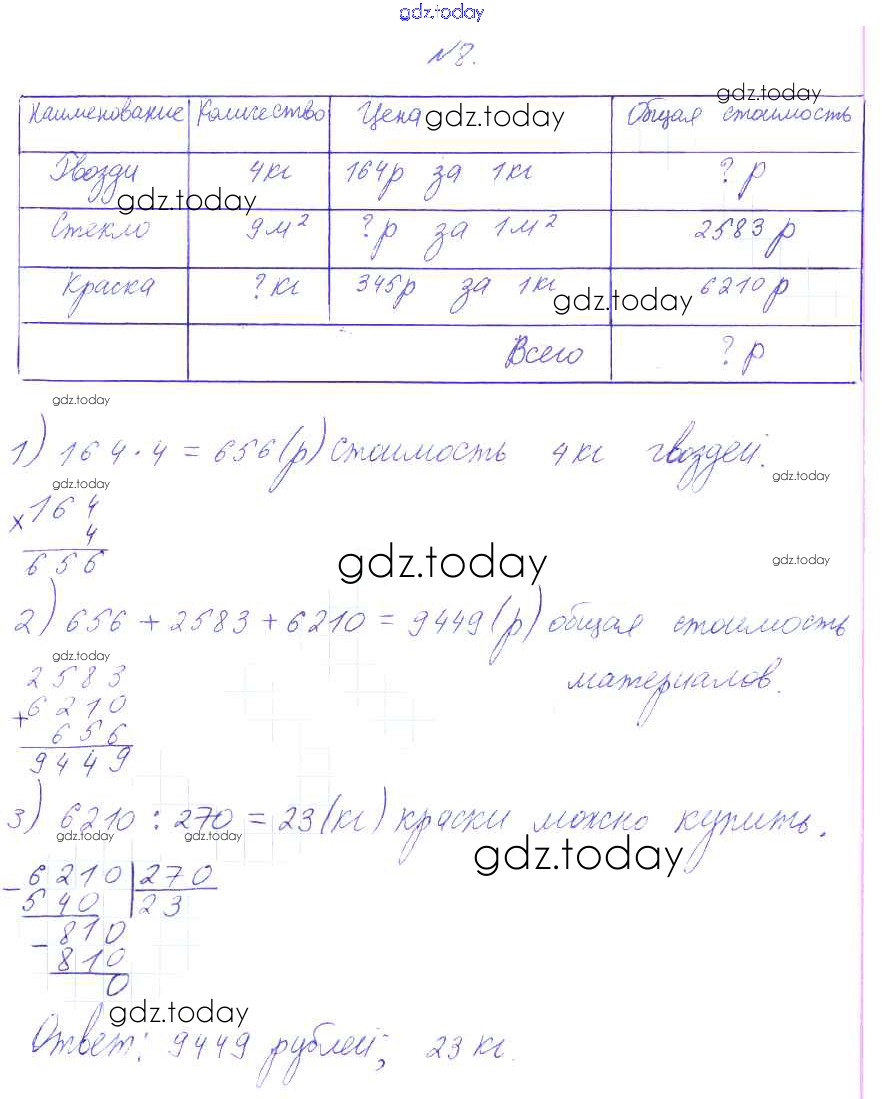 gdz.today
№8.
Наименование Количество Цена gdz.today Общая стоимость gdz.today
Гвозди 4кг 164р за 1кг ? р
gdz.today
Стекло 9м² ?р за 1м² 2583 р
Краска ? кг 345р за 1кг 6210 р
gdz.today
Всего ? р
gdz.today
1) 164 · 4 = 656(р) стоимость 4кг гвоздей.
gdz.today gdz.today
× 164
4
656
gdz.today gdz.today
2) 656 + 2583 + 6210 = 9449(р) общая стоимость
материалов.
gdz.today
2583
+ 6210
656
9449
3) 6210 : 270 = 23(кг) краски можно купить.
gdz.today gdz.today gdz.today
- 6210 270
540 23
- 810
810
0
gdz.today
Ответ: 9449 рублей; 23 кг.